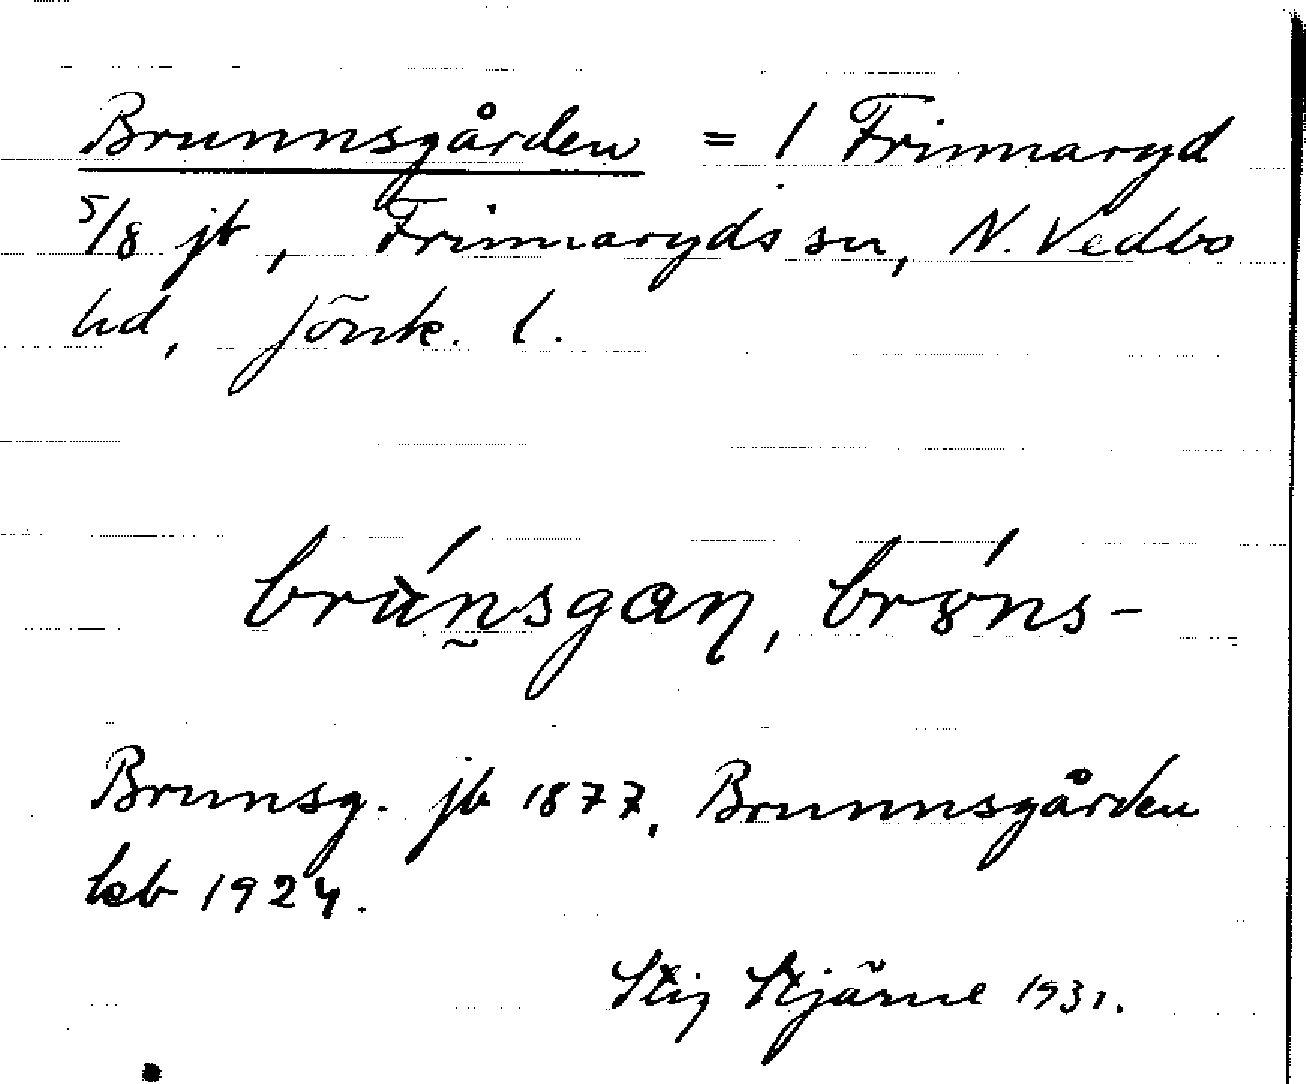 Brunnsgården = 1 Frinnaryd
5/8 jb, Frinnaryds sn, N. Vedbo
hd, Jönk. l.
brùnsgaɳ, brɤns-
Brunsg. jb 1877, Brunnsgården
kb 1924.
Stig Stjärne 1931.